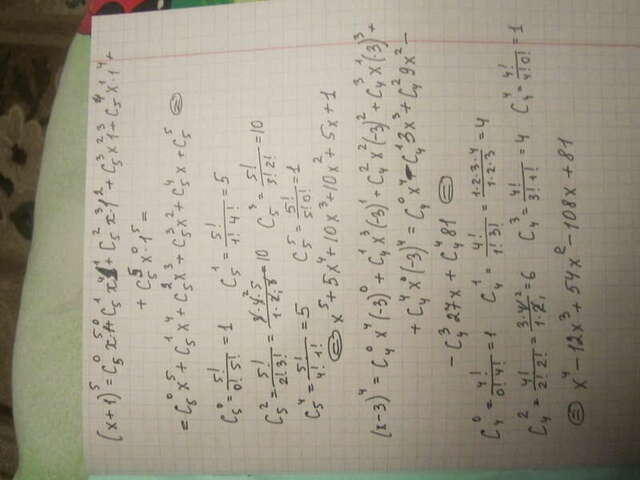 (x+1)⁵ = C₅⁰x⁵1⁰ + C₅¹x⁴1¹ + C₅²x³1² + C₅³x²1³ + C₅⁴x¹·1⁴ +
+ C₅⁵x⁰·1⁵ =
= C₅⁰x⁵ + C₅¹x⁴ + C₅²x³ + C₅³x² + C₅⁴x + C₅⁵ ⊜
C₅⁰ = 5!/0!5! = 1 C₅¹ = 5!/1!4! = 5
C₅² = 5!/2!3! = 10 C₅³ = 5!/3!2! = 10
C₅⁴ = 5!/4!1! = 5 C₅⁵ = 5!/5!0! = 1
⊜ x⁵ + 5x⁴ + 10x³ + 10x² + 5x + 1
(x-3)⁴ = C₄⁰x⁴(-3)⁰ + C₄¹x³(-3)¹ + C₄²x²(-3)² + C₄³x¹(3)³ +
+ C₄⁴x⁰(-3)⁴ = C₄⁰x⁴ - C₄¹3x³ + C₄²9x² -
- C₄³27x + C₄⁴81 ⊜
C₄⁰ = 4!/0!4! = 1 C₄¹ = 4!/1!3! = 1·2·3·4/1·2·3 = 4
C₄² = 4!/2!2! = 3·4/1·2 = 6 C₄³ = 4!/3!1! = 4 C₄⁴ = 4!/4!0! = 1
⊜ x⁴ - 12x³ + 54x² - 108x + 81